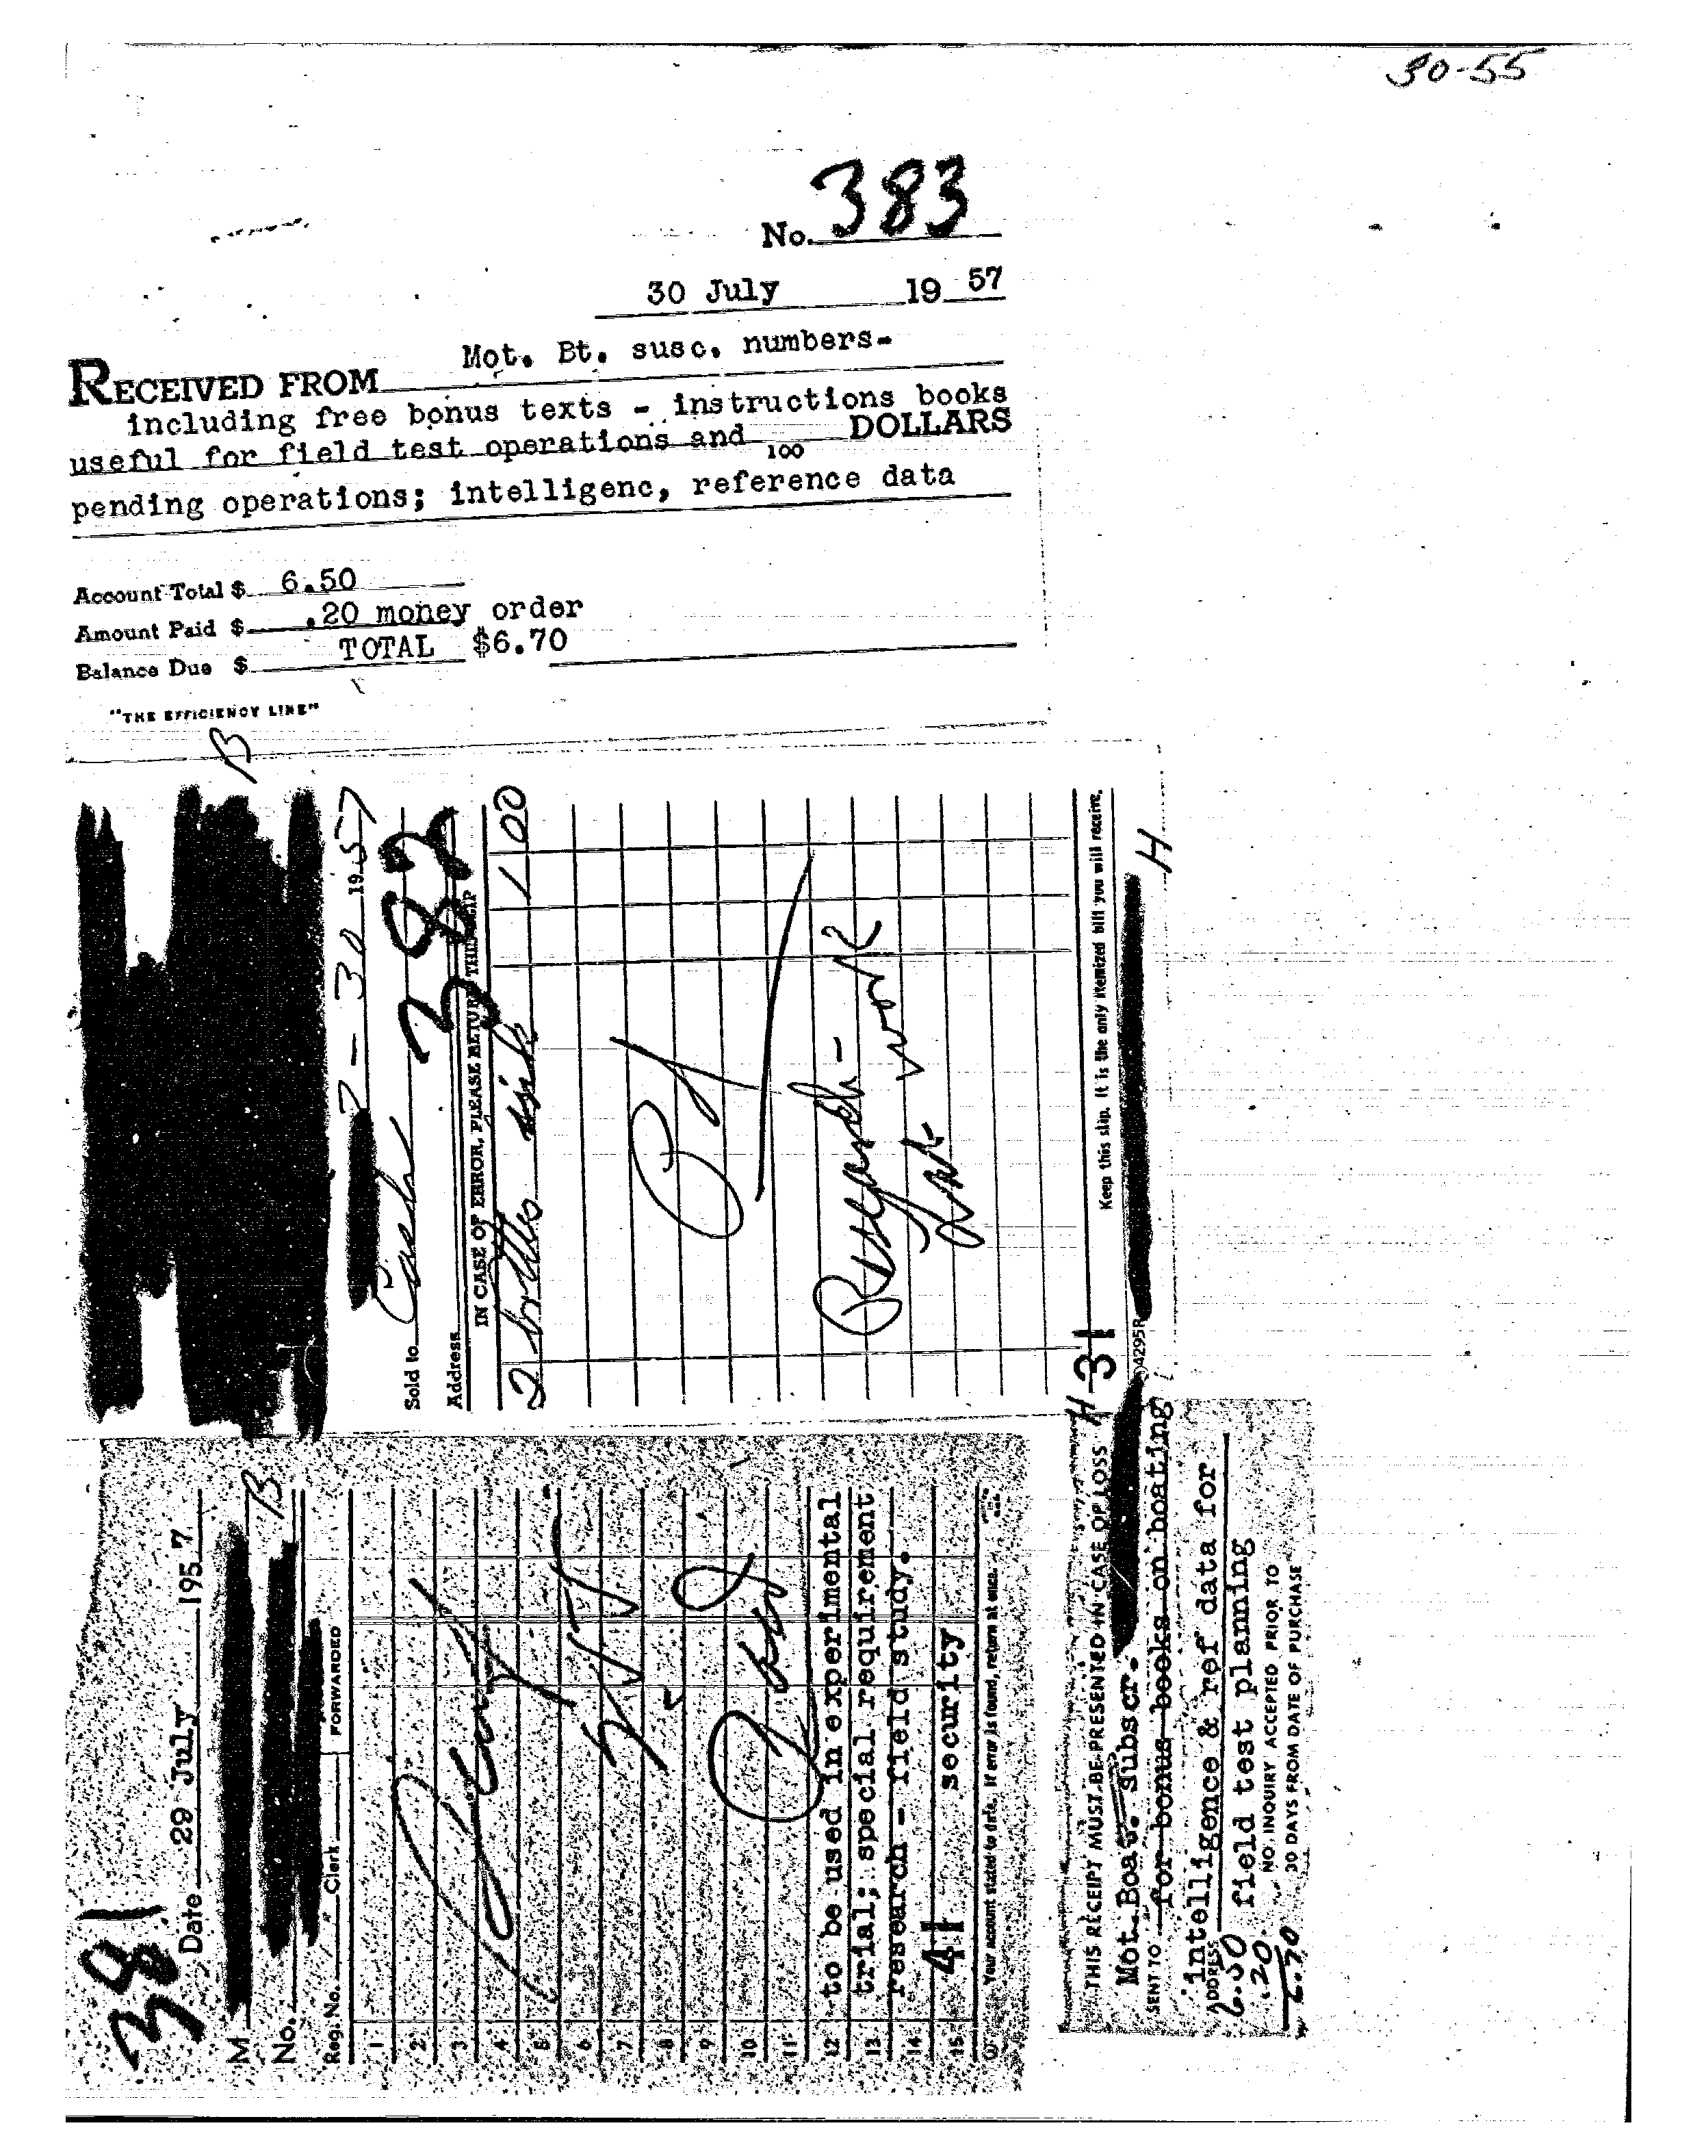 30-55
No. 383
30 July 19 57
RECEIVED FROM Mot. Bt. susc. numbers-
including free bonus texts - instructions books
useful for field test operations and 100 DOLLARS
pending operations; intelligenc, reference data
Account Total $ 6.50
Amount Paid $ .20 money order
Balance Due $ TOTAL $6.70
"THE EFFICIENCY LINE"
B
7-30 1957
Sold to Cash 382
Address
IN CASE OF ERROR, PLEASE RETURN THIS SLIP
2 bottles 1 00
Research-
work
Keep this slip. It is the only itemized bill you will receive.
H
381
Date 29 July 1957
M
B
No.
Reg. No. Clerk FORWARDED
1
2
3
4
5
6
7
8
9
10
11
12 to be used in experimental
13 trial; special requirement
14 research - field study.
15 41 security
Your account stated to date. If error is found, return at once.
H 31 04295R
THIS RECEIPT MUST BE PRESENTED IN CASE OF LOSS
Mot. Boat. subscr.
SENT TO for bonus books on boating
intelligence & ref data for
ADDRESS
6.50 field test planning
.20 NO INQUIRY ACCEPTED PRIOR TO
6.70 30 DAYS FROM DATE OF PURCHASE